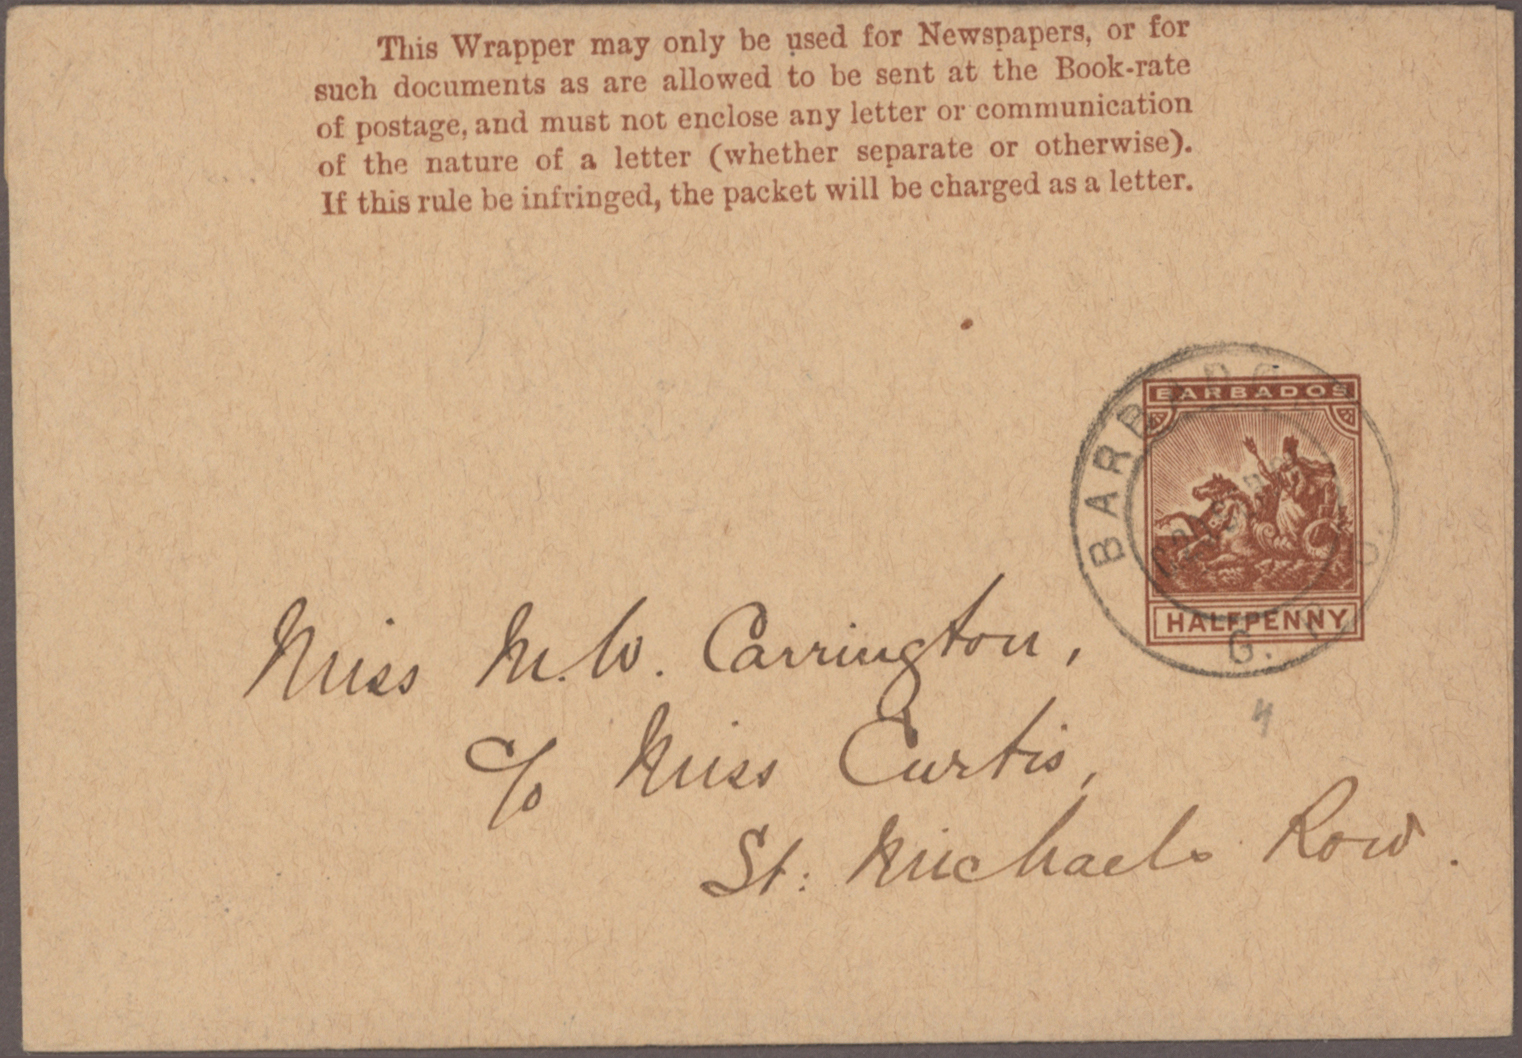 This Wrapper may only be used for Newspapers, or for
such documents as are allowed to be sent at the Book-rate
of postage, and must not enclose any letter or communication
of the nature of a letter (whether separate or otherwise).
If this rule be infringed, the packet will be charged as a letter.
BARBADOS
BARBADOS
HALFPENNY
G.
Miss M. W. Carrington,
c/o Miss Curtis,
St: Michaels Row.